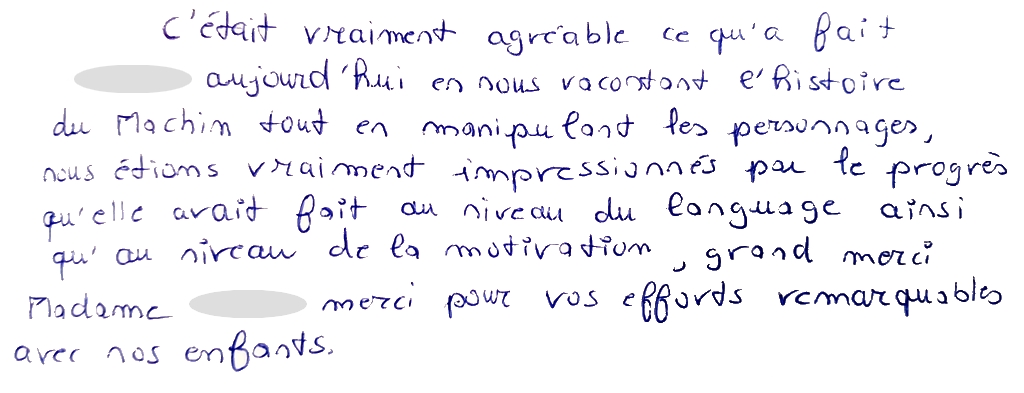 C'était vraiment agréable ce qu'a fait
aujourd'hui en nous racontant l'histoire
du Machin tout en manipulant les personnages,
nous étions vraiment impressionnés par le progrès
qu'elle avait fait au niveau du language ainsi
qu'au niveau de la motivation, grand merci
Madame merci pour vos effords remarquables
avec nos enfants.